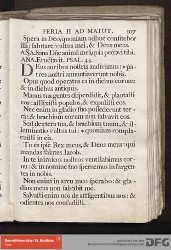 FERIA II AD MATUT. 107
Spera in Deo, quoniam adhuc confitebor
illi: salutare vultus mei, & Deus meus.
ANA. Eructavit. PSAL. 43.
Deus auribus nostris audivimus:
patres nostri annuntiaverunt nobis.
Opus quod operatus es in diebus eorum:
& in diebus antiquis.
Manus tua gentes disperdidit, & plantasti
eos: afflixisti populos, & expulisti eos.
Nec enim in gladio suo possederunt
terram: & brachium eorum non salvavit eos.
Sed dextera tua, & brachium tuum, &
illuminatio vultus tui: quoniam
complacuisti in eis.
Tu es ipse Rex meus, & Deus meus: qui
mandas salutes Jacob.
In te inimicos nostros ventilabimus
cornu: & in nomine tuo spernemus insurgentes
in nobis.
Non enim in arcu meo sperabo: &
gladius meus non salvabit me.
Salvasti enim nos de affligentibus nos: &
odientes nos confudisti.